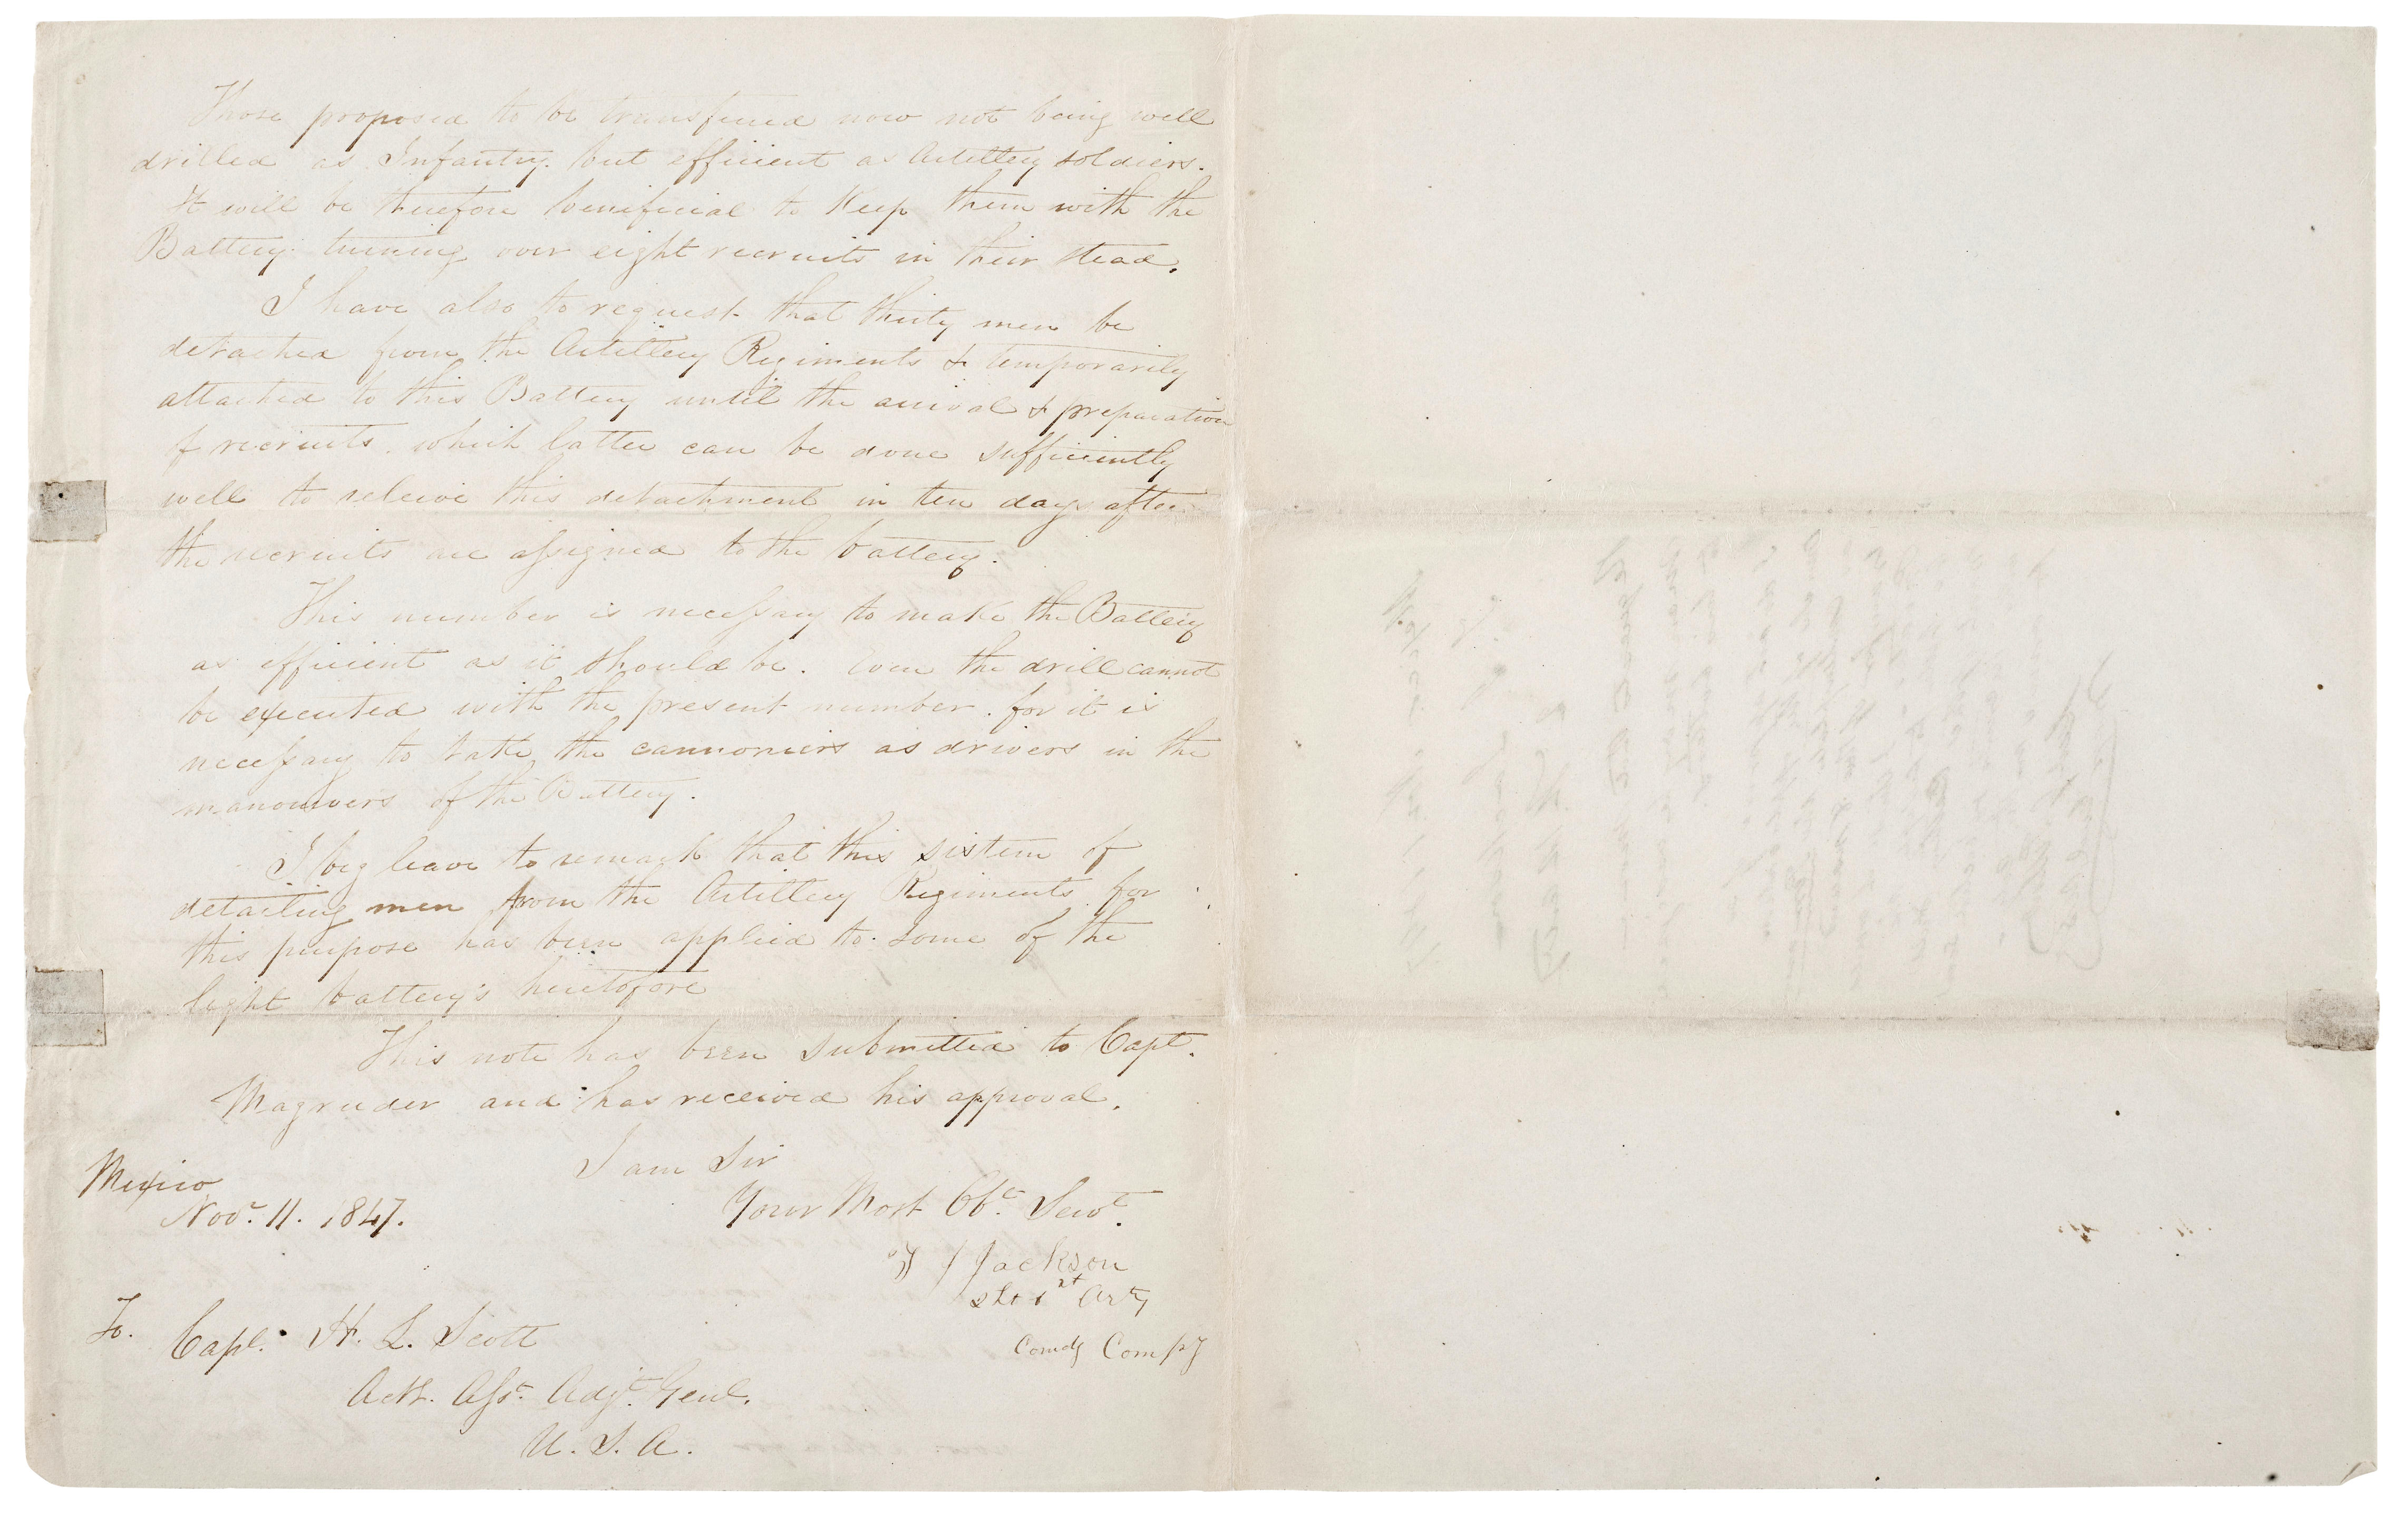 Those proposed to be transfered now not being well
drilled as Infantry. but efficient as Artillery soldiers.
It will be therefore benificial to Keep them with the
Battery turning over eight recruits in their stead.
I have also to request that thirty men be
detached from the Artillery Regiments & temporarily
attached to this Battery until the arrival & preparation
of recruits. which latter can be done sufficiently
well to releive this detachment in ten days after
the recruits are assigned to the battery.
This number is necessary to make the Battery
as efficient as it should be. Even the drill cannot
be executed with the present number. for it is
necessary to take the cannoniers as drivers in the
manouvers of the Battery.
I beg leave to remark that this sistem of
detailing men from the Artillery Regiments for
this purpose has been applied to some of the
light battery's heretofore
This note has been submitted to Capt.
Magruder and has received his approval.
I am Sir
Your Most Obt. Servt.
T J Jackson
2 Lt 1st Arty
Comdg Compy
Mexico
Novr. 11. 1847.
To.
Capt. H. L. Scott
Actg. Asst. Adjt. Genl.
U. S. A.